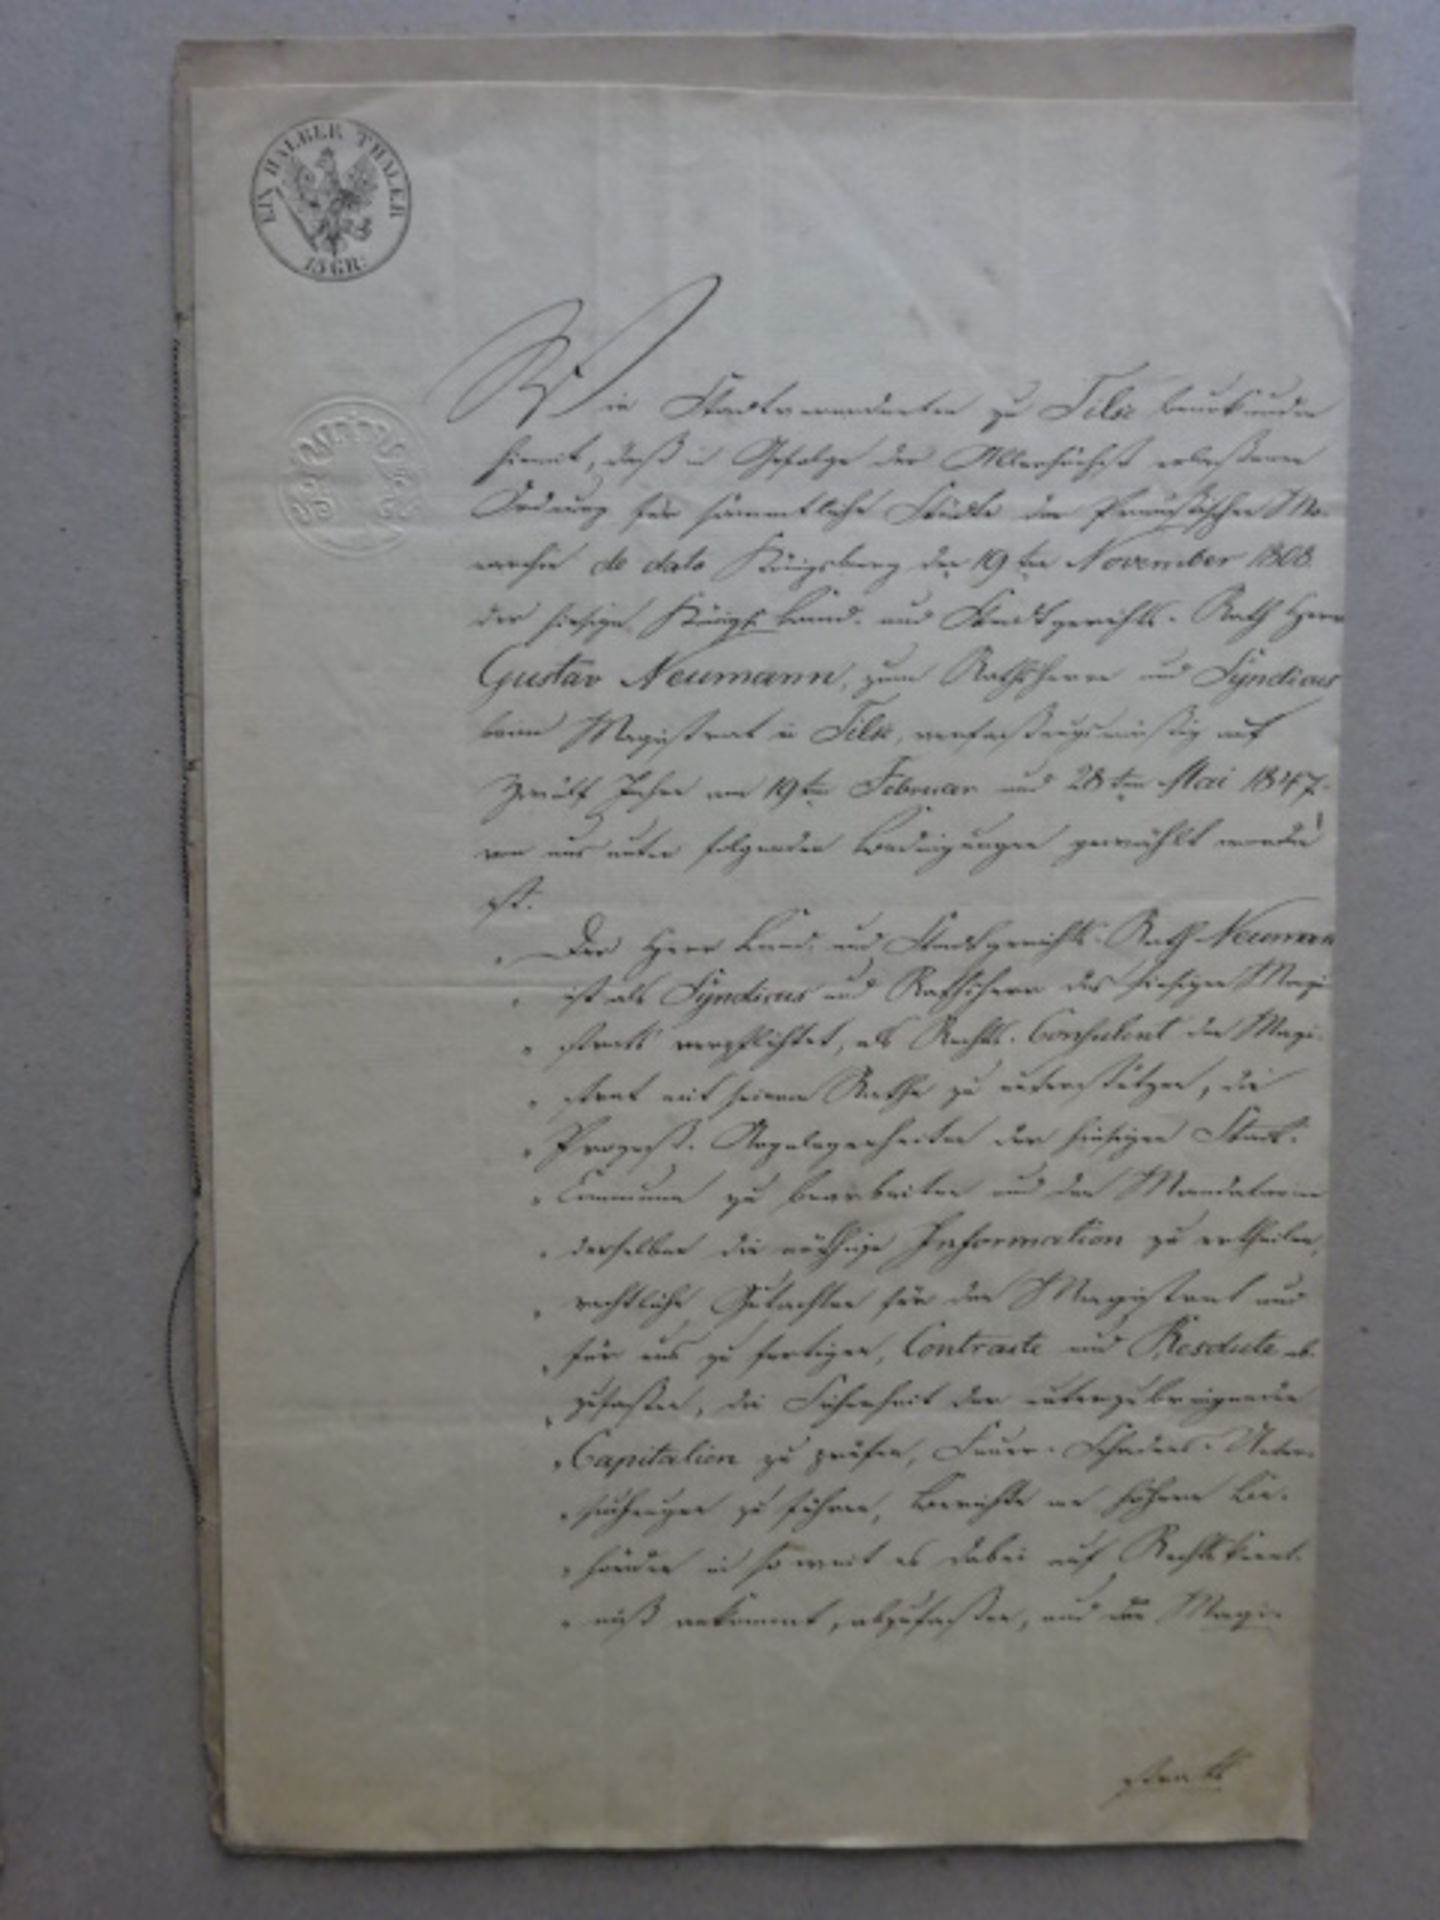 EIN HALBER THALER
15 GR:
Wir Stadtverordneten zu Tilse beurkunden
hiemit, daß in Gefolge der Allerhöchst erlaßenen
Ordnung für sämmtliche Städte der Preußischen Mo-
narchie de dato Königsberg den 19ten November 1808.
der hiesige Königl: Land- und Stadtgerichts-Rath Herr
Gustav Neumann, zum Rathsherrn und Syndicus
beim Magistrat in Tilse, verfaßungsmäßig auf
Zwölf Jahre am 19ten Februar und 28ten Mai 1847.
von uns unter folgenden Bedingungen gewählt worden
ist.
„Der Herr Land- und Stadtgerichts-Rath Neumann
„ist als Syndicus und Rathsherr des hiesigen Magi-
„strats verpflichtet, als Rechts-Consulent den Magi-
„strat mit seinem Rathe zu unterstützen, die
„Prozeß-Angelegenheiten der hiesigen Stadt-
„Commune zu bearbeiten und den Mandatarien
„derselben die nöthige Information zu ertheilen,
„rechtliche Gutachten für den Magistrat und
„für uns zu fertigen, Contracte und Resolute ab-
„zufaßen, die Sicherheit der unterzubringenden
„Capitalien zu prüfen, Feuer-Schadens-Unter-
„suchungen zu führen, Berichte an höhere Be-
„hörden in so weit es dabei auf Rechtskennt-
„niß ankommt, abzufaßen, und den Magi-
strats